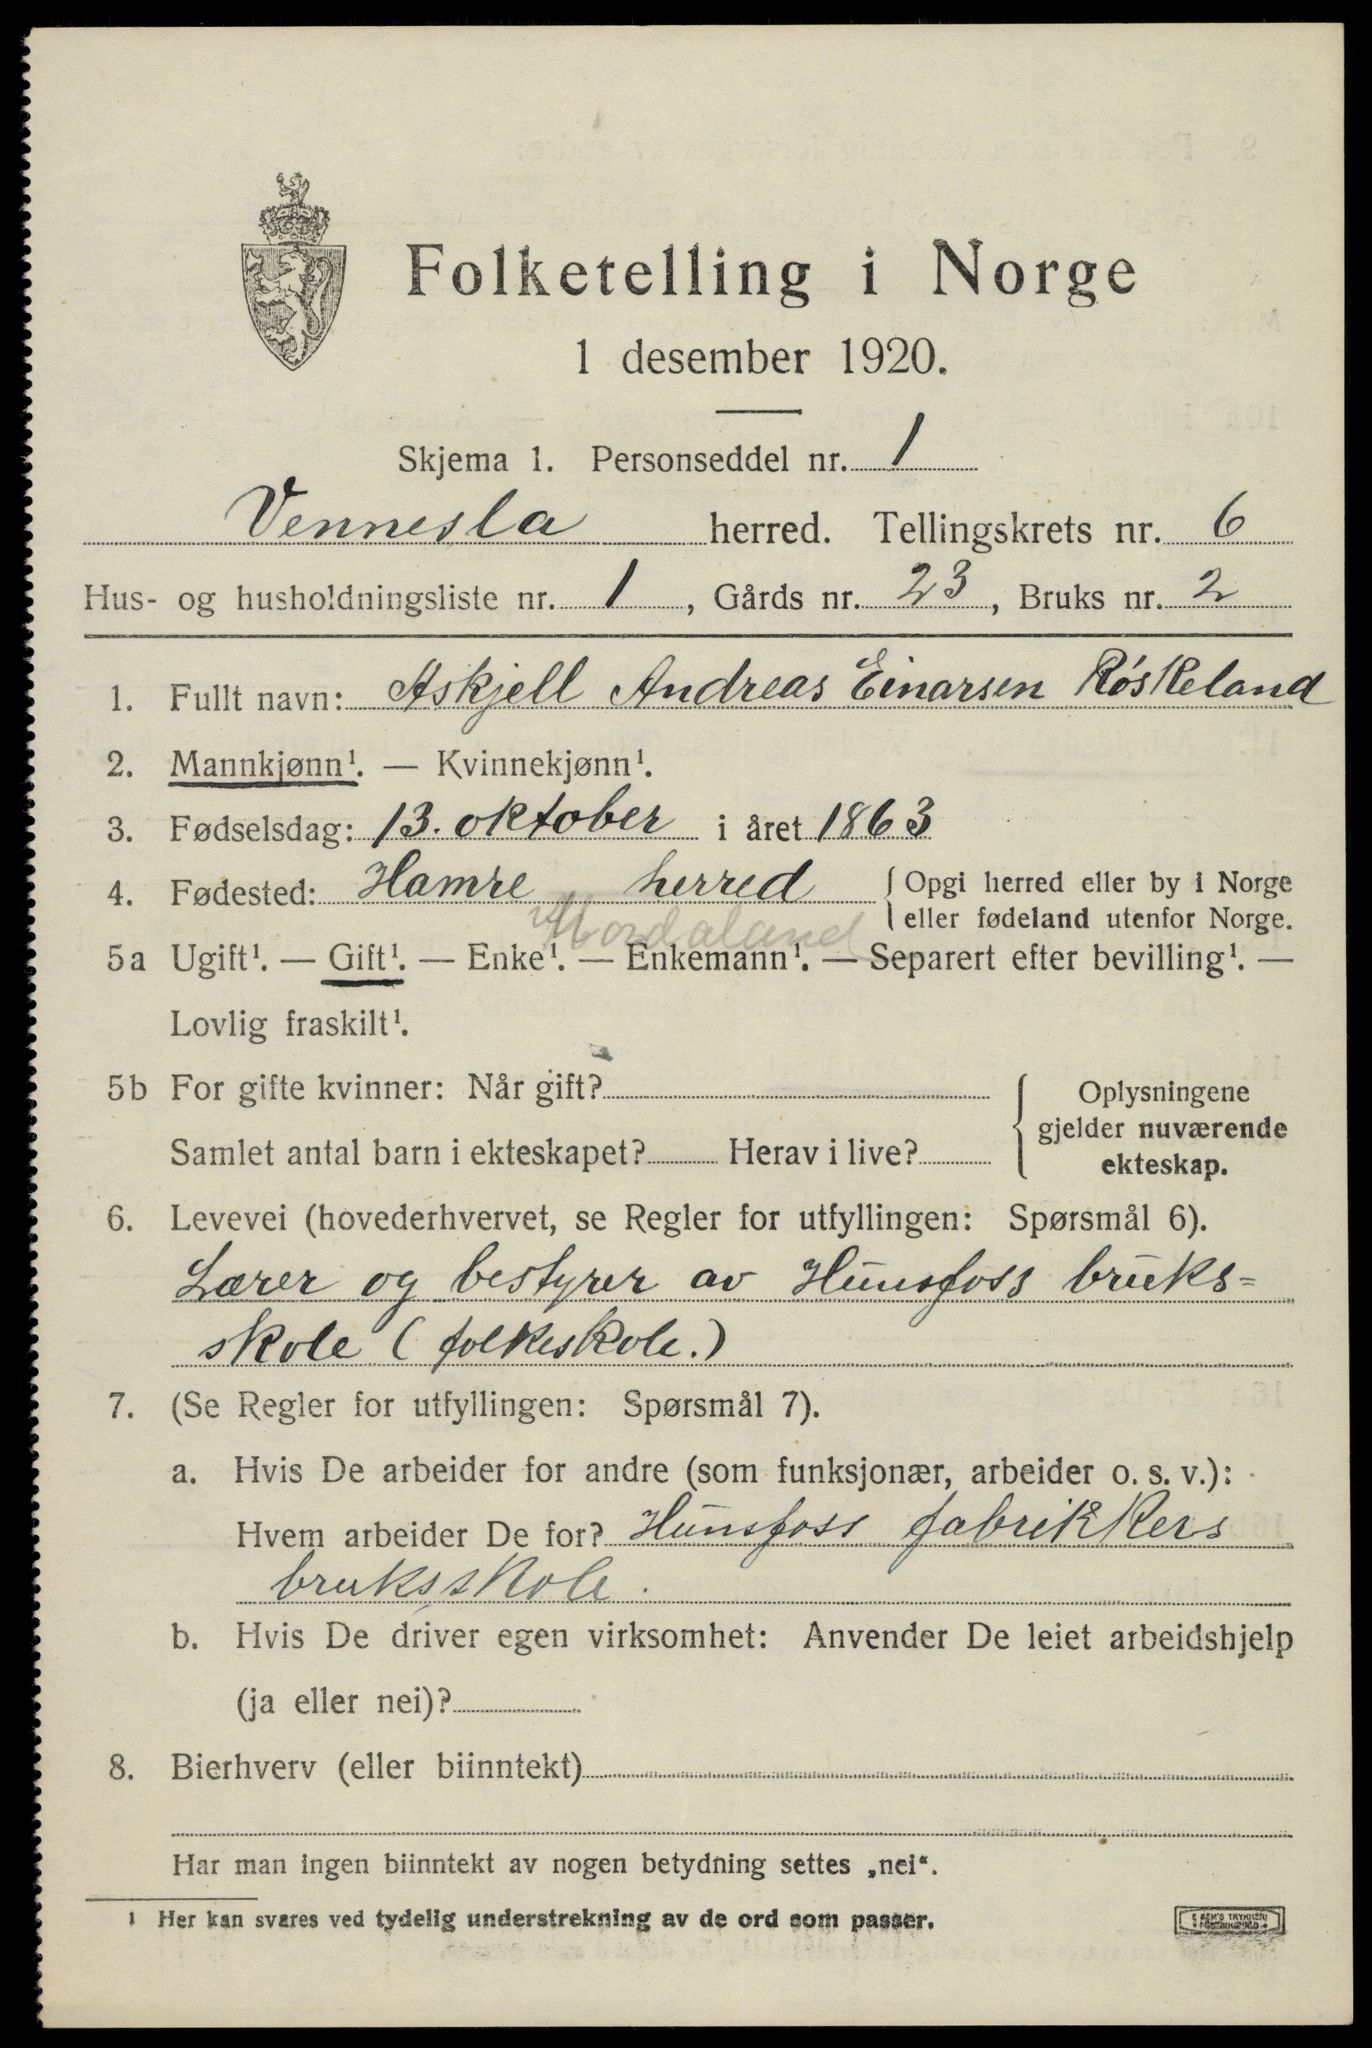 Folketelling i Norge
1 desember 1920.
Skjema 1. Personseddel nr. 1
Vennesla herred. Tellingskrets nr. 6
Hus- og husholdningsliste nr. 1, Gårds nr. 23, Bruks nr. 2
1. Fullt navn: Askjell Andreas Einarsen Røskeland
2. Mannkjønn¹. — Kvinnekjønn¹.
3. Fødselsdag: 13. oktober i året 1863
4. Fødested: Hamre herred { Opgi herred eller by i Norge
eller fødeland utenfor Norge.
Hordaland
5a Ugift¹. — Gift¹. — Enke¹. — Enkemann¹. — Separert efter bevilling¹. —
Lovlig fraskilt¹.
5b For gifte kvinner: Når gift?
Samlet antal barn i ekteskapet? Herav i live?
Oplysningene
gjelder nuværende
ekteskap.
6. Levevei (hovederhvervet, se Regler for utfyllingen: Spørsmål 6).
Lærer og bestyrer av Hunsfoss bruks=
skole (folkeskole.)
7. (Se Regler for utfyllingen: Spørsmål 7).
a. Hvis De arbeider for andre (som funksjonær, arbeider o. s. v.):
Hvem arbeider De for? Hunsfoss fabrikkers
bruksskole.
b. Hvis De driver egen virksomhet: Anvender De leiet arbeidshjelp
(ja eller nei)?
8. Bierhverv (eller biinntekt)
Har man ingen biinntekt av nogen betydning settes „nei“.
¹ Her kan svares ved tydelig understrekning av de ord som passer.